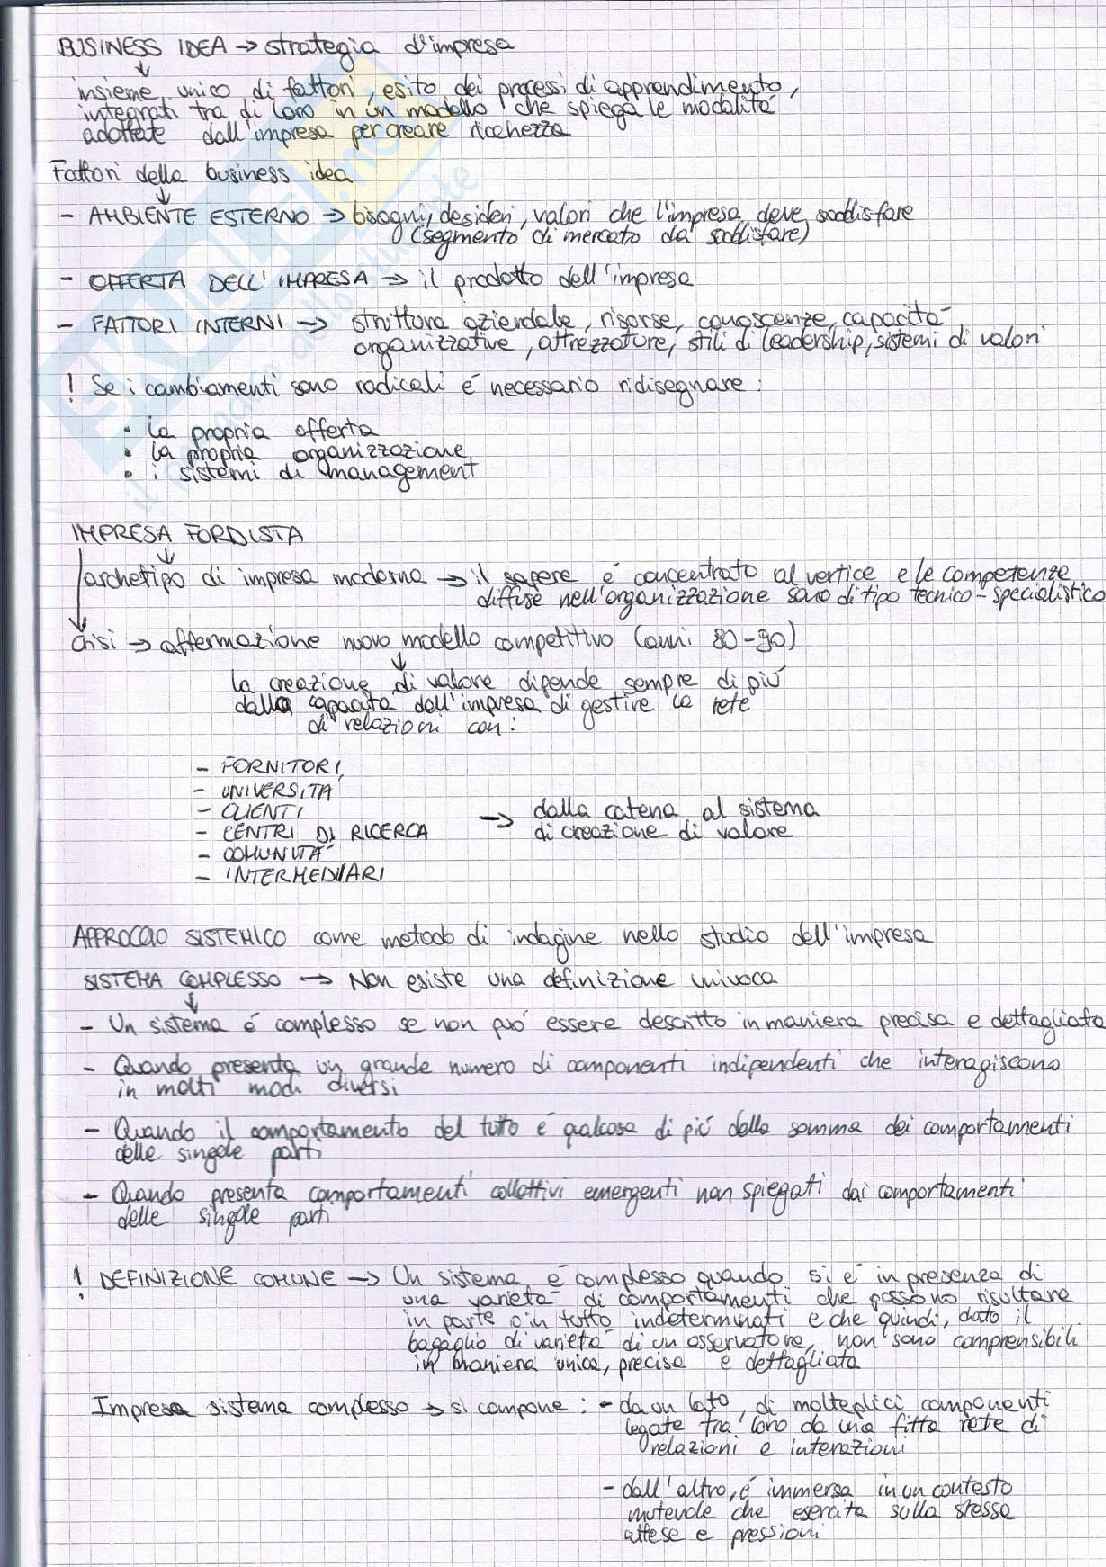 BUSINESS IDEA → strategia d'impresa
↓
insieme unico di fattori, esito dei processi di apprendimento,
integrati tra di loro in un modello che spiega le modalità
adottate dall'impresa per creare ricchezza
Fattori della business idea
↓
- AMBIENTE ESTERNO → bisogni, desideri, valori che l'impresa deve soddisfare
(segmento di mercato da soddisfare)
- OFFERTA DELL'IMPRESA → il prodotto dell'impresa
- FATTORI INTERNI → struttura aziendale, risorse, conoscenze, capacità
organizzative, attrezzature, stili di leadership, sistemi di valori
! Se i cambiamenti sono radicali é necessario ridisegnare:
• la propria offerta
• la propria organizzazione
• i sistemi di management
IMPRESA FORDISTA
↓
archetipo di impresa moderna → il sapere é concentrato al vertice e le competenze
diffuse nell'organizzazione sono di tipo tecnico-specialistico
crisi → affermazione nuovo modello competitivo (anni 80-90)
↓
la creazione di valore dipende sempre di piú
dalla capacità dell'impresa di gestire la rete
di relazioni con:
- FORNITORI
- UNIVERSITÁ
- CLIENTI
- CENTRI DI RICERCA → dalla catena al sistema
di creazione di valore
- COMUNITÁ
- INTERMEDIARI
APPROCCIO SISTEMICO come metodo di indagine nello studio dell'impresa
SISTEMA COMPLESSO → Non esiste una definizione univoca
↓
- Un sistema é complesso se non puó essere descritto in maniera precisa e dettagliata
- Quando presenta un grande numero di componenti indipendenti che interagiscono
in molti modi diversi
- Quando il comportamento del tutto é qualcosa di piú della somma dei comportamenti
delle singole parti
- Quando presenta comportamenti collettivi emergenti non spiegati dai comportamenti
delle singole parti
! DEFINIZIONE COMUNE → Un sistema é complesso quando si é in presenza di
una varietá di comportamenti che possono risultare
in parte o in tutto indeterminati e che quindi, dato il
bagaglio di varietá di un osservatore, non sono comprensibili
in maniera unica, precisa e dettagliata
Impresa sistema complesso → si compone: - da un lato, di molteplici componenti
legate tra loro da una fitta rete di
relazioni e interazioni
- dall'altro, é immersa in un contesto
mutevole che esercita sulla stessa
attese e pressioni